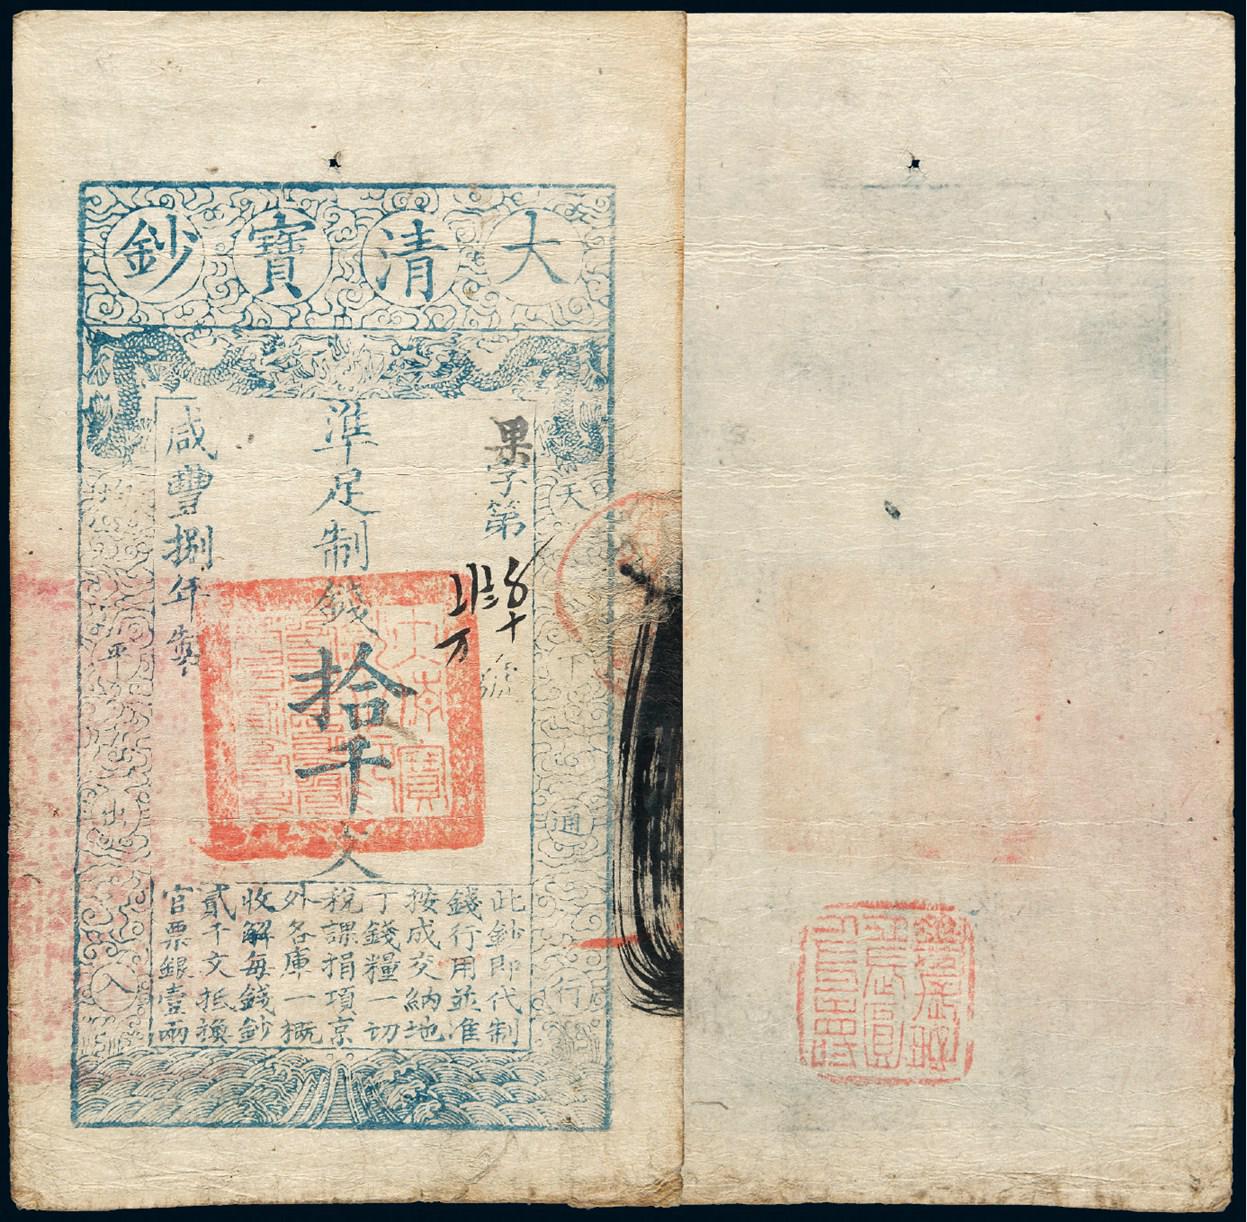 大清寶鈔
果字第
號
準足制錢拾千文
咸豐捌年製
天下通行
平出入
此鈔即代制
錢行用並准
按成交納地
丁錢糧一切
稅課捐項京
外各庫一概
收解每錢鈔
貳千文抵換
官票銀壹兩